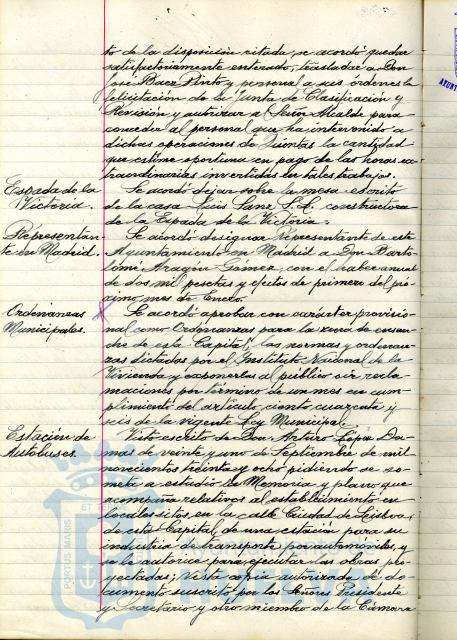 to de la disposición citada, se acordó quedar
satisfactoriamente enterado, trasladar a Don
José Baez Pinto y personal a sus órdenes la
felicitación de la Junta de Clasificación y
Revisión y autorizar al Señor Alcalde para
conceder al personal que ha intervenido a
dichas operaciones de Quintas la cantidad
que estime oportuna en pago de las horas ex-
traordinarias invertidas en tales trabajos.
Espada de la
Victoria.
Se acordó dejar sobre la mesa escrito
de la casa Luis Sanz S.A. constructora
de la Espada de la Victoria.
Representan-
te en Madrid.
Se acordó designar Representante de este
Ayuntamiento en Madrid a Don Barto-
lomé Aragón Gómez, con el haber anual
de dos mil pesetas y efectos de primero del pró-
ximo mes de Enero.
Ordenanzas
Municipales.
Se acordó aprobar con carácter provisio-
nal como Ordenanzas para la zona de ensan-
che de esta Capital, las normas y ordenan-
zas dictadas por el Instituto Nacional de la
Vivienda y exponerlas al público sin recla-
maciones por término de un mes en cum-
plimiento del artículo ciento cuarenta y
seis de la vigente Ley Municipal.
Estación de
Autobuses.
Visto escrito de Don Arturo López Da-
mas de veinte y uno de Septiembre de mil
novecientos treinta y ocho pidiendo se so-
meta a estudio la Memoria y plano que
acompaña relativos al establecimiento en
locales sitos en la calle Ciudad de
de esta Capital, de una estación para su
industria de transporte por automóviles, y
se le autorice para ejecutar las obras pro-
yectadas; Vista copia autorizada de do-
cumento suscrito por los Señores Presidente
y Secretario y otro miembro de la Cámara
PORTUS MARIS
ET TERR
Ayuntamiento de
HUELVA
AYUNT